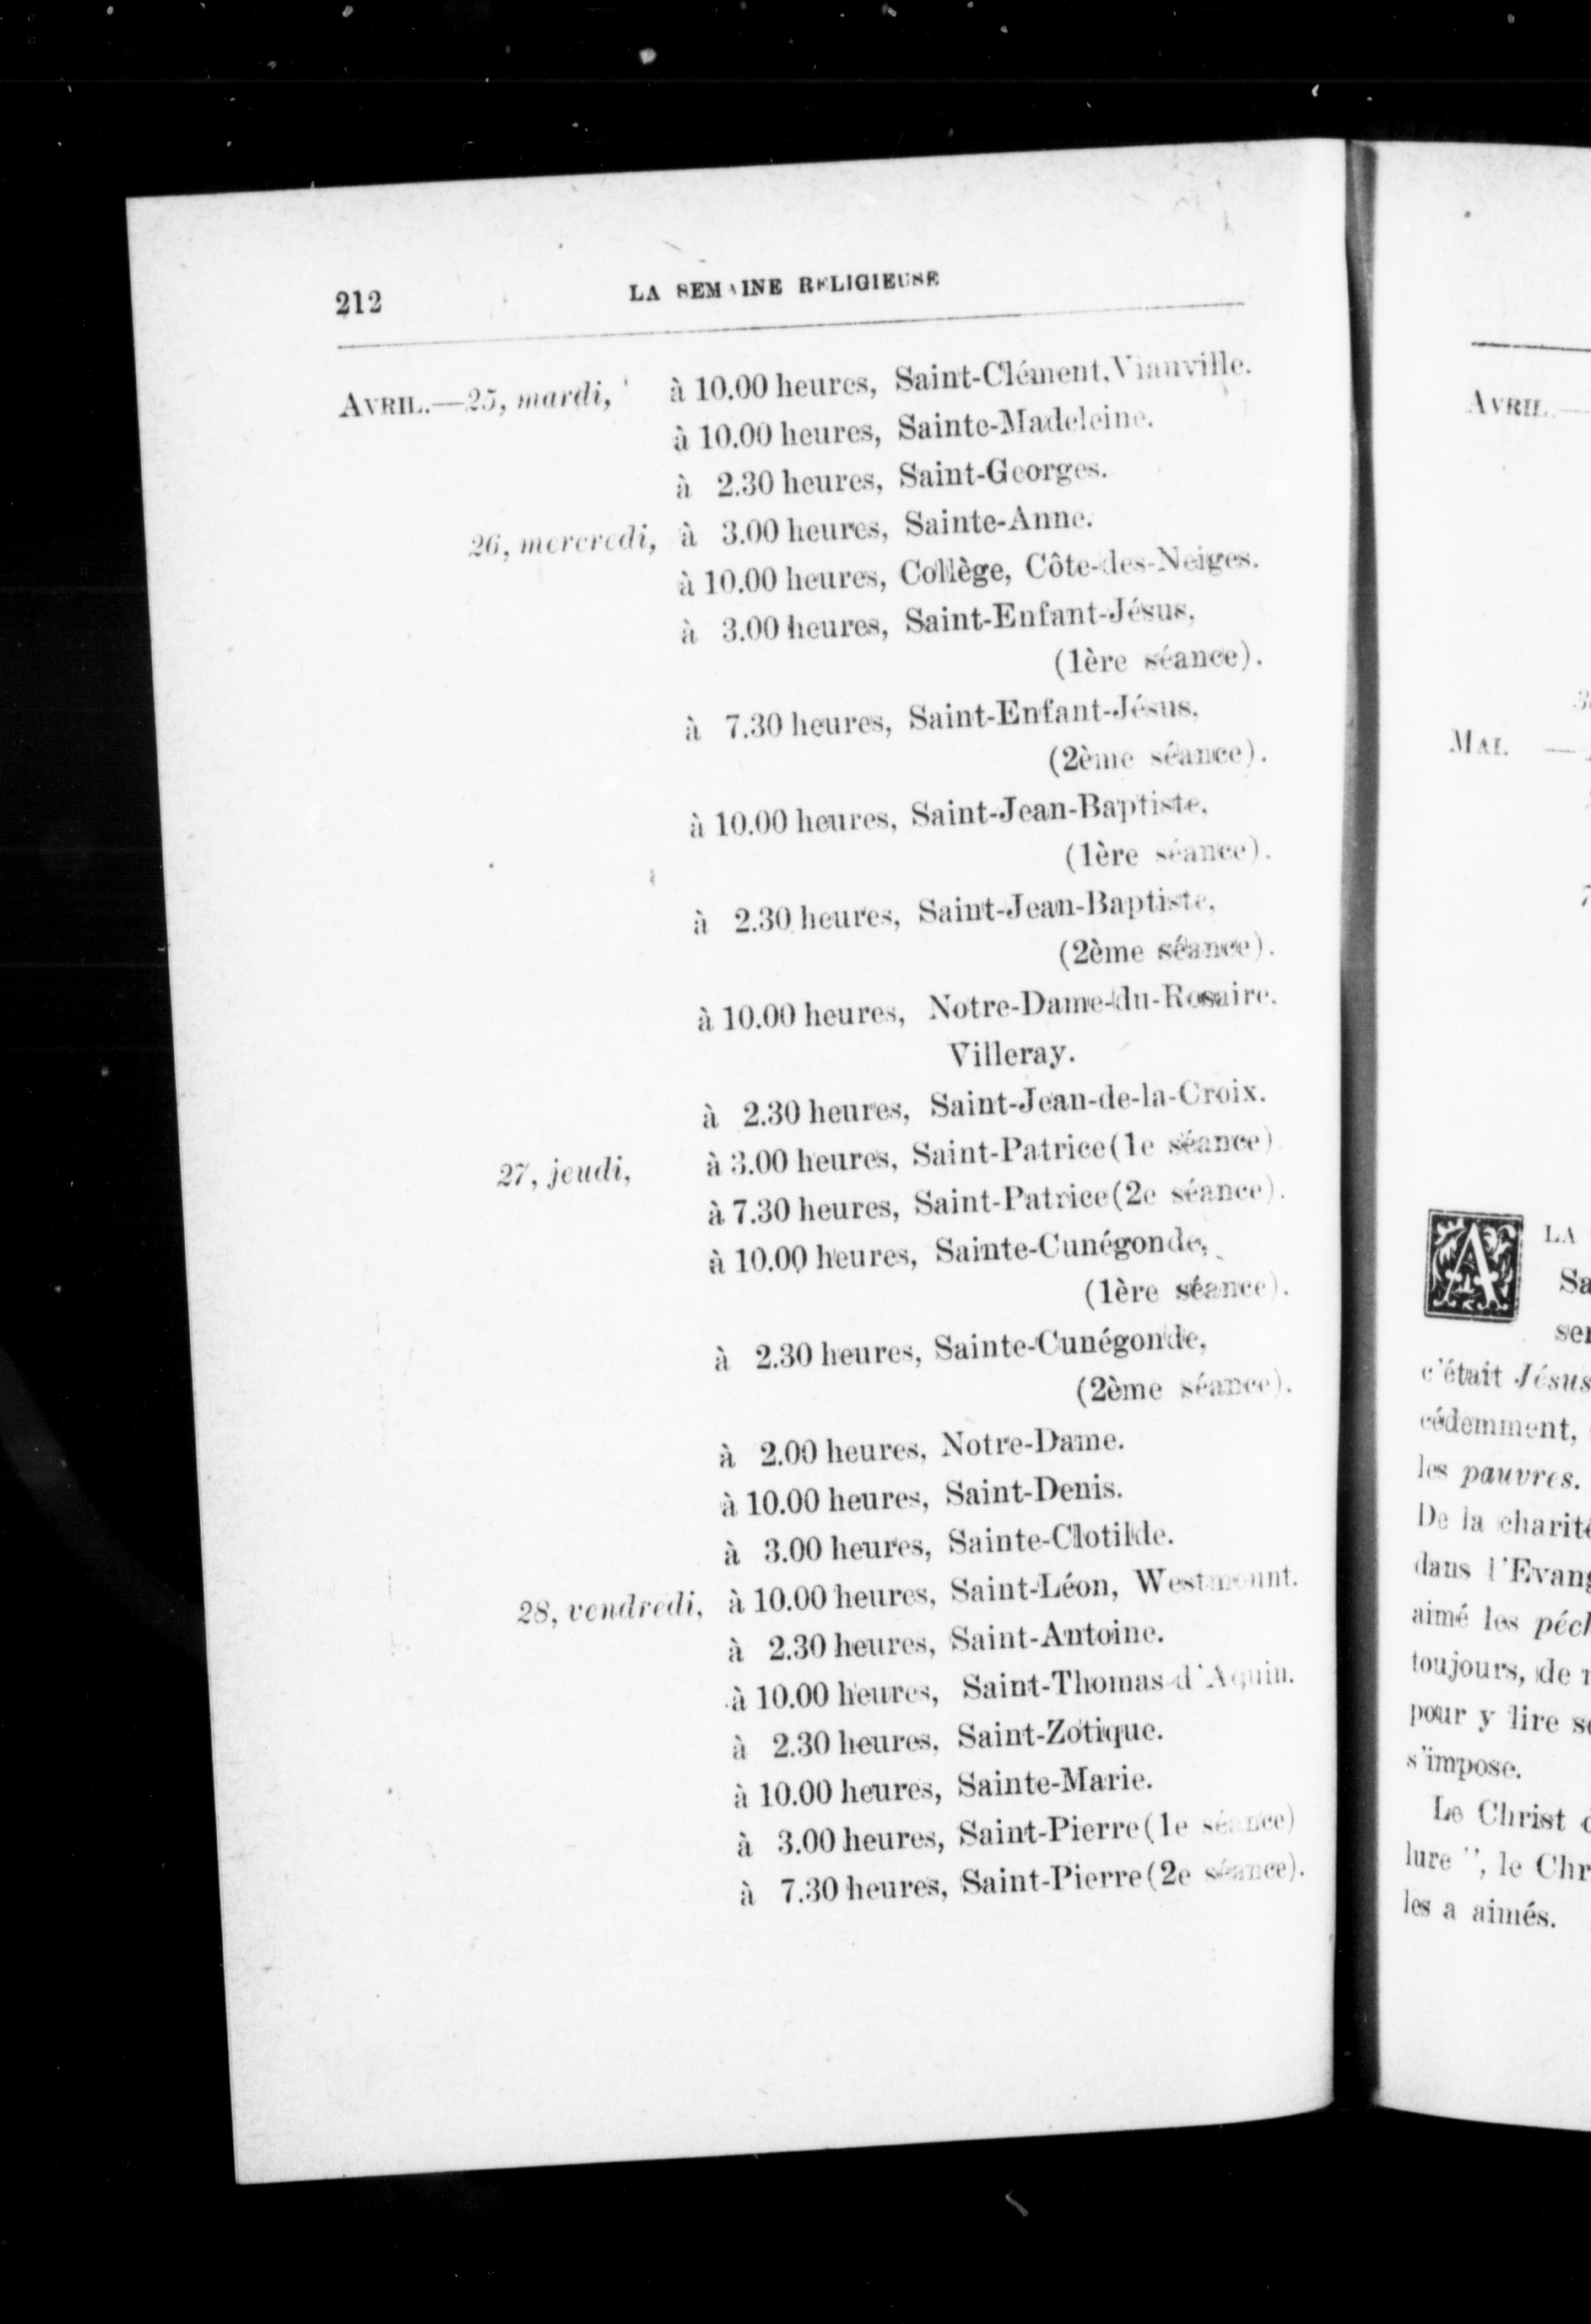 212
LA SEMAINE RELIGIEUSE
AVRIL.—25, mardi, à 10.00 heures, Saint-Clément, Vianville.
à 10.00 heures, Sainte-Madeleine.
à 2.30 heures, Saint-Georges.
26, mercredi, à 3.00 heures, Sainte-Anne.
à 10.00 heures, Collège, Côte-des-Neiges.
à 3.00 heures, Saint-Enfant-Jésus,
(1ère séance).
à 7.30 heures, Saint-Enfant-Jésus,
(2ème séance).
à 10.00 heures, Saint-Jean-Baptiste,
(1ère séance).
à 2.30 heures, Saint-Jean-Baptiste,
(2ème séance).
à 10.00 heures, Notre-Dame-du-Rosaire,
Villeray.
à 2.30 heures, Saint-Jean-de-la-Croix.
27, jeudi, à 3.00 heures, Saint-Patrice (1e séance)
à 7.30 heures, Saint-Patrice (2e séance).
à 10.00 heures, Sainte-Cunégonde,
(1ère séance).
à 2.30 heures, Sainte-Cunégonde,
(2ème séance).
à 2.00 heures, Notre-Dame.
à 10.00 heures, Saint-Denis.
à 3.00 heures, Sainte-Clotilde.
28, vendredi, à 10.00 heures, Saint-Léon, Westmount.
à 2.30 heures, Saint-Antoine.
à 10.00 heures, Saint-Thomas-d'Aquin.
à 2.30 heures, Saint-Zotique.
à 10.00 heures, Sainte-Marie.
à 3.00 heures, Saint-Pierre (1e séance)
à 7.30 heures, Saint-Pierre (2e séance).
AVRIL.—
MAI. —
A LA
Sa
ser
c'était Jésus
cédemment,
les pauvres.
De la charité
dans l'Evang
aimé les péch
toujours, de
pour y lire
s'impose.
Le Christ
lure", le Chr
les a aimés.